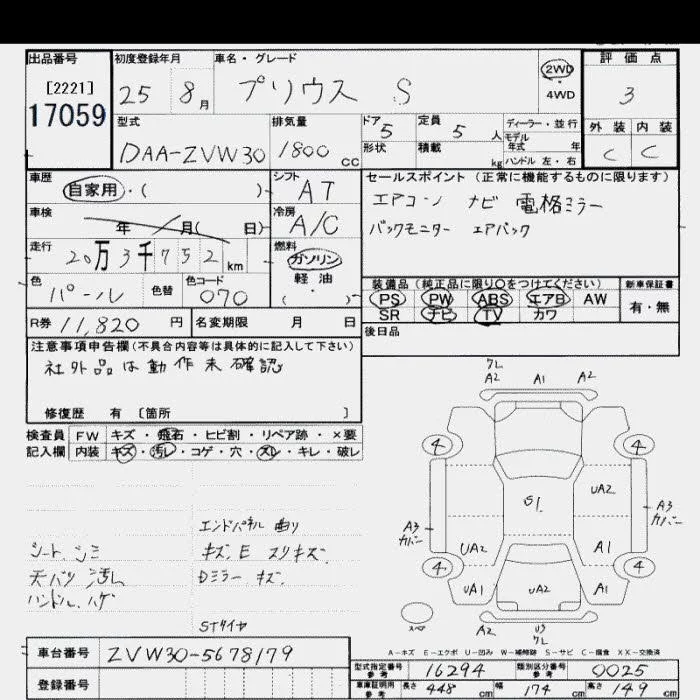 出品番号 初度登録年月 車名・グレード 2WD・4WD 評価点
[2221]
17059
25 8月 プリウス S 3
型式 排気量 ドア 5 定員 5人 ディーラー・並行 外装 内装
DAA-ZVW30 1800cc 形状 積載 kg モデル年式 年 C C
ハンドル 左・右
車歴 自家用・( ) シフト AT セールスポイント (正常に機能するものに限ります)
車検 年 月( 日) 冷房 A/C エアコン ナビ 電格ミラー
バックモニター エアバック
走行 20万3千752km 燃料 ガソリン
軽油・( )
色 パール 色替 色コード 070 装備品 (純正品に限り○をつけてください) 新車保証書
PS PW ABS エアB AW 有・無
R券 11,820円 名変期限 月 日 SR ナビ TV カワ
後日品
注意事項申告欄 (不具合内容等は具体的に記入して下さい)
社外品は動作未確認
修復歴 有 [箇所 ]
検査員 FW キズ・飛石・ヒビ割・リペア跡・×要
記入欄 内装 キズ・汚レ・コゲ・穴・スレ・キレ・破レ
クレ
A2 A1 A2
4 4
S1 UA2
A3 カバー A3 カバー
UA2 A1
4 4
UA1 UA2 A1
スペア
A2 U3
クレ
エンドパネル 曲り
シート シミ キズ、E スリキズ、
天バリ 汚レ Dミラー キズ、
ハンドル ハゲ
STタイヤ
A-キズ E-エクボ U-凹み W-補修跡 S-サビ C-腐食 XX-交換済
車台番号 ZVW30-5678179
型式指定番号 参考 16294 類別区分番号 参考 0025
登録番号
車庫証明用 参考 長さ 448cm 幅 174cm 高さ 149cm